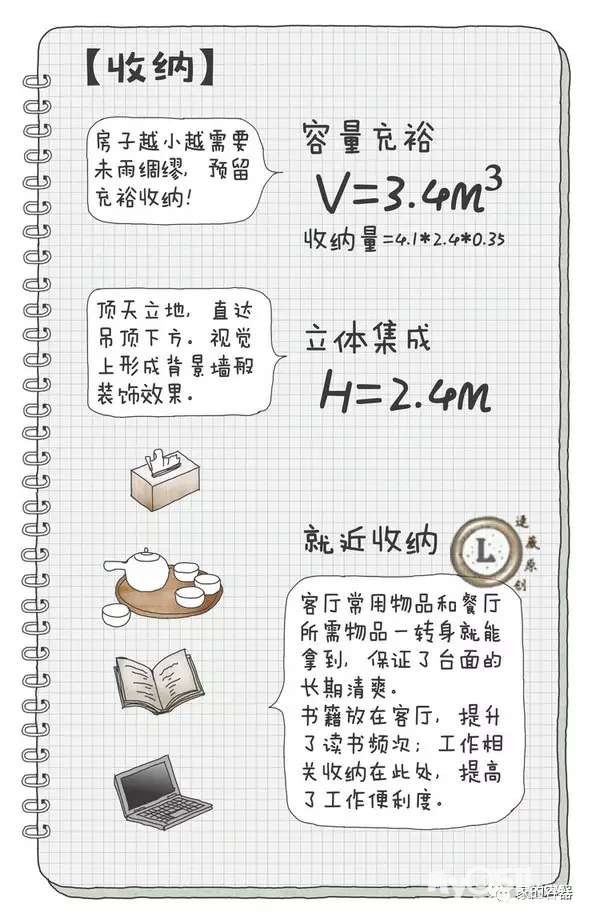 【收纳】
房子越小越需要
未雨绸缪，预留
充裕收纳!
容量充裕
V=3.4m³
收纳量=4.1*2.4*0.35
顶天立地，直达
吊顶下方。视觉
上形成背景墙般
装饰效果。
立体集成
H=2.4m
就近收纳
L
逯薇原创
客厅常用物品和餐厅
所需物品一转身就能
拿到，保证了台面的
长期清爽。
书籍放在客厅，提升
了读书频次；工作相
关收纳在此处，提高
了工作便利度。
家的容器